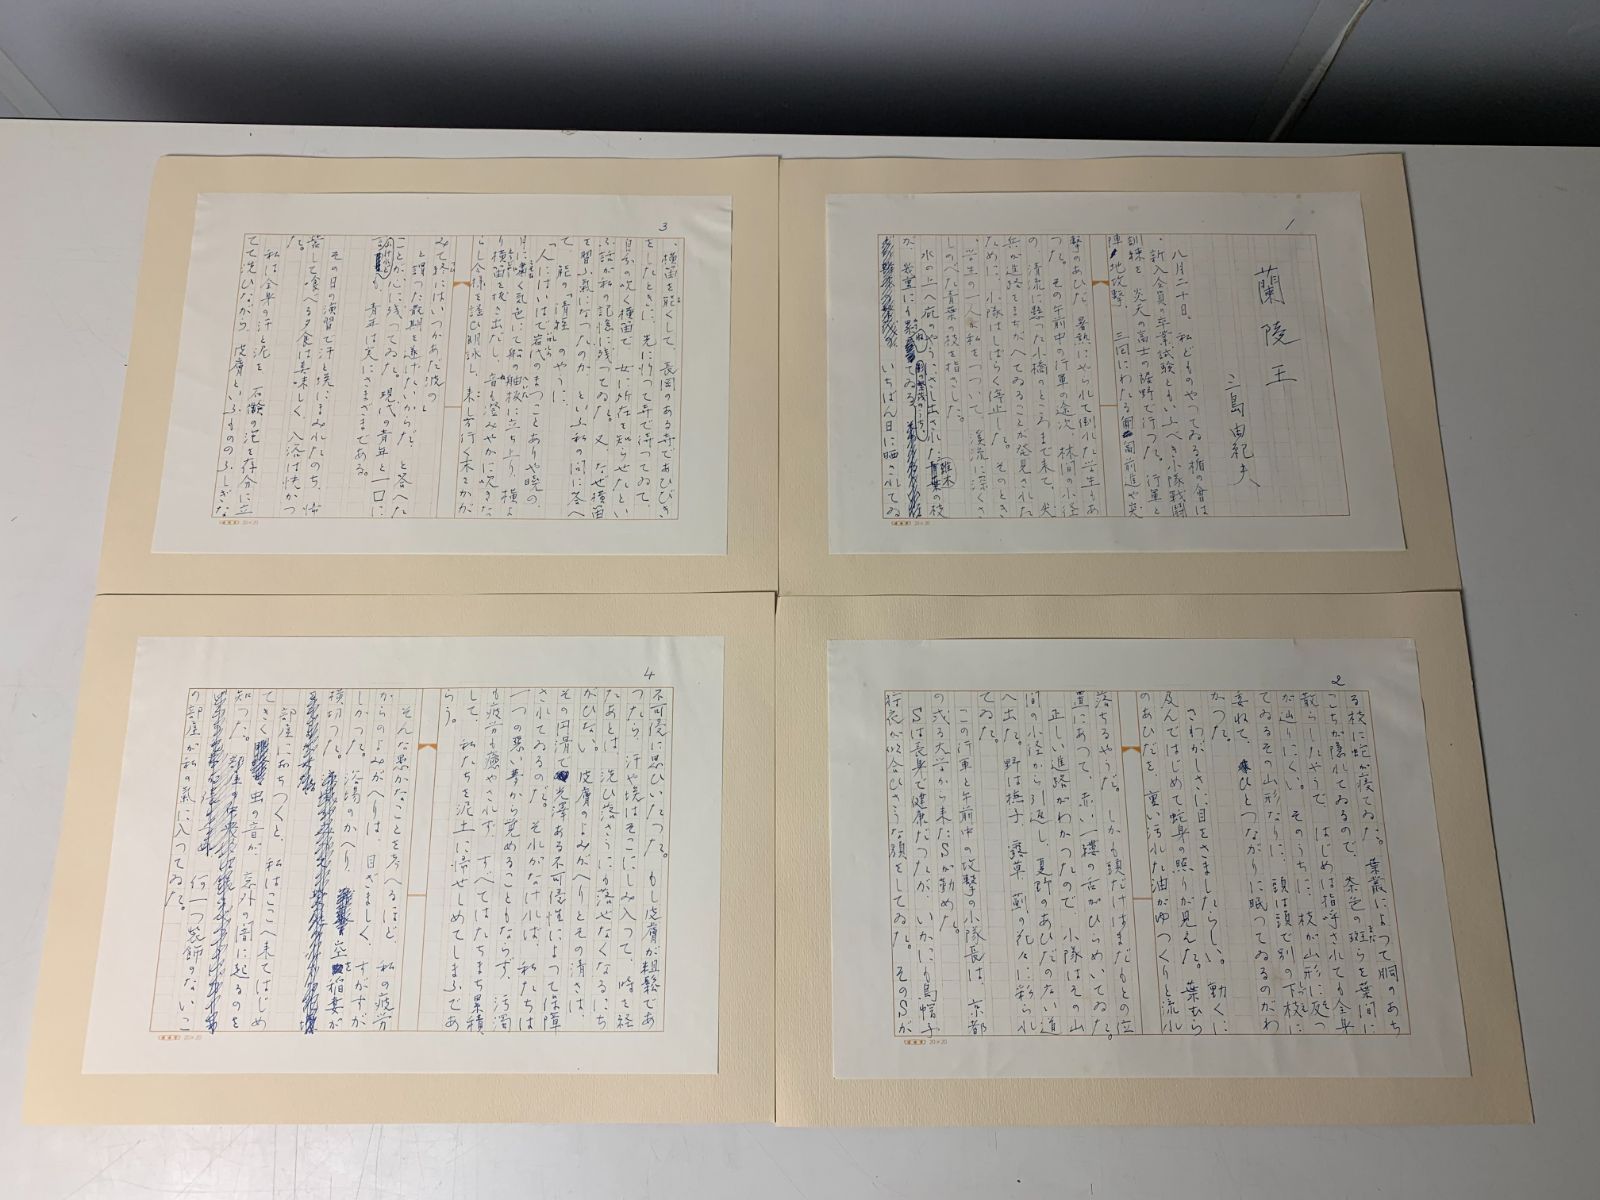 1
蘭陵王
三島由紀夫
八月二十日、私どものやつてゐる楯の會は
、新入会員の卒業試験ともいふべき小隊戦闘
訓練を、炎天の富士の裾野で行つた。行軍と
陣地攻撃、三回にわたる匍匐前進や突
撃のあひだ、暑熱にやられて倒れた学生もあ
つた。その午前中の行軍の途次、林間の小径
の、清流に懸つた小橋のところまで来て、尖
兵が進路をまちがへてゐることが発見された
ために、小隊はしばらく停止した。そのとき
、学生の一人が私をつついて、渓流に深くさ
しのべた青葉の枝を指さした。
水の上へ庇のやうにさし出された雑木の枝
が、幾重にも
いちばん日に晒されてゐ
20×20
2
る枝に蛇が寝てゐた。葉叢によつて胴のあち
こちが隠れてゐるので、茶色の斑らを葉間に
散らしたやうで、はじめは指呼されても全身
が辿りにくい。そのうちに、枝が山形に反つ
てゐるその山形なりに、頭は頭で別の下枝に
委ねて、ひとつながりに眠つてゐるのがわ
かつた。
さわがしさに目をさましたらしい。動くに
及んではじめて蛇身の照りが見えた。葉むら
のあひだを、重い汚れた油がゆつくりと流れ
落ちるやうだ。しかも頭だけはまだもとの位
置にあつて、赤い一縷の舌がひらめいてゐた。
正しい進路がわかつたので、小隊はその山
間の小径から引返し、夏野のあひだのない道
へ出た。野は撫子、薊の花々に彩られ
てゐた。
この行軍と午前中の攻撃の小隊長は、京都
の或る大学から来たSが勤めた。
Sは長身で健康だつたが、いかにも烏帽子
狩衣が似合ひさうな顔をしてゐた。そのSが
20×20
3
、横笛を能くして、長岡のある寺であひびき
をしたときに、先に行つて寺で待つてゐて、
自分の吹く横笛で、女に所在を知らせたとい
ふ話が私の記憶に残つてゐた。又、なぜ横笛
を習ふ氣になつたのか、といふ私の問に答へ
て、能の「清経」のやうに、
「人にはいはで岩代のまつことありや暁の、
月に嘯く気色にて船の舳板に立ち上り、横よ
り横笛を抜き出だし、音も澄みやかに吹きな
らし今様を謡ひ朗詠し、来し方行く末をかが
みて終にはいつかあだ波の」
と謂つた最期を遂げたいからだ、と答へた
ことが心に残つてゐた。現代の青年と一口に
青年は実にさまざまである。
その日の演習で汗と埃にまみれたのち、
して食べる夕食は美味しく、入浴は快かつ
た。
私は全身の汗と泥を、石鹸の泡を存分に立
てて洗ひながら、皮膚といふもののふしぎな
20×20
4
不可侵に思ひいたつた。もし皮膚が粗鬆であ
つたら、汗や埃はそこにしみ入つて、時を経
たあとは、洗ひ落さうにも落せなくなるにち
がひない。皮膚のよみがへりとその清さは、
その円滑で光澤ある不可侵性によつて保障
されてゐるのだ。それがなければ、私たちは
一つの悪い夢から覚めることもならず、汚濁
も疲労も癒やされず、すべてはたちまち累積
して、私たちを泥土に帰せしめてしまふであ
らう。
そんな愚かなことを考へるほど、私の疲労
からのよみがへりは、目ざましく、すがすが
しかつた。浴場のかへり、空を稲妻が
横切つた。
部屋におちつくと、私はここへ来てはじめ
てきく虫の音が、窓外の闇に起るのを
知つた。
何一つ装飾のないこ
の部屋が私の氣に入つてゐた。
20×20